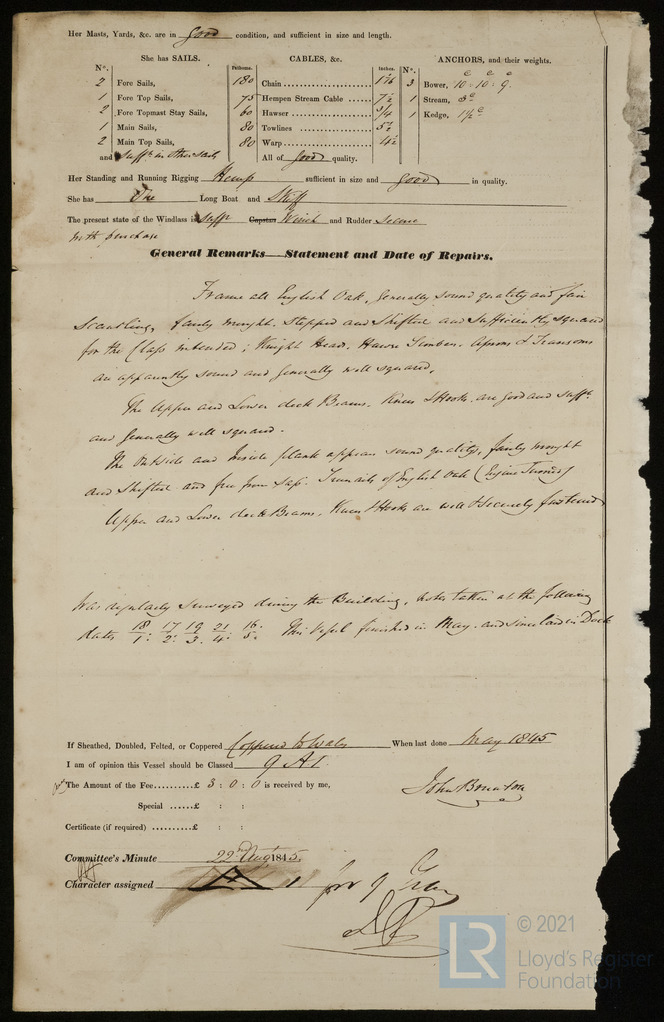 Her Masts, Yards, &c. are in good condition, and sufficient in size and length.
She has SAILS.
N°. Fathoms.
2 Fore Sails, 180
1 Fore Top Sails, 75
2 Fore Topmast Stay Sails, 60
1 Main Sails, 80
2 Main Top Sails, 80
and Sufft in other sails
CABLES, &c.
Inches.
Chain 1 1/16
Hempen Stream Cable 7½
Hawser
Towlines
Warp 4½
All of good quality.
ANCHORS, and their weights.
N°.
3 Bower, 10 . 10 . 9.
1 Stream, 3c
1 Kedge, 1½c
Her Standing and Running Rigging Hemp sufficient in size and good in quality.
She has One Long Boat and Skiff
The present state of the Windlass is sufft Capstan Winch and Rudder Secure
with purchase
General Remarks—Statement and Date of Repairs.
Frame all English Oak, generally sound quality and fair
scantling, fairly wrought. Stepped and Shifted and sufficiently squared
for the Class intended; Knight Head. Hawse Timbers. Aprons & Transoms
are apparently sound and generally well squared.
The Upper and Lower deck Beams. Knees & Hooks. are good and sufft
and generally well squared.
The Outside and Inside plank appears sound quality, fairly wrought
and Shifted and free from sap. Trenails of English Oak (Engine Turned)
Upper and Lower deck Beams. Knees & Hooks are well & securely fastened
Was regularly surveyed during the Building, notes taken at the following
dates 18/1: 17/2: 19/3. 21/4: 16/5. This Vessel finished in May. and since laid in Dock
If Sheathed, Doubled, Felted, or Coppered Coppered to Wales When last done May 1845
I am of opinion this Vessel should be Classed 9 A 1.
The Amount of the Fee..........£ 3 : 0 : 0 is received by me,
John Brunton
Special ......£ : :
Certificate (if required) ..........£ : :
Committee's Minute 22nd Augt 1845.
Character assigned A 1 for 9
© 2021
LR Lloyd's Register
Foundation